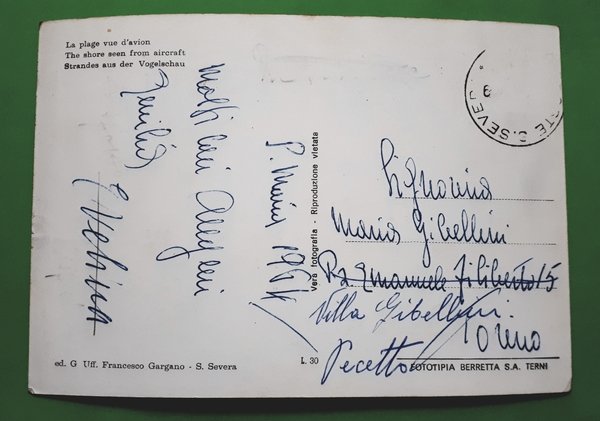 La plage vue d'avion
The shore seen from aircraft
Strandes aus der Vogelschau
Molti cari auguri
Emilia
S. Maria 1964
Vera fotografia - Riproduzione vietata
SEVER
Signorina
Maria Gibellini
Pza Emanuele Filiberto 15
Villa Gibellini
Torino
Pecetto
ed. G Uff. Francesco Gargano - S. Severa
L. 30
FOTOTIPIA BERRETTA S.A. TERNI